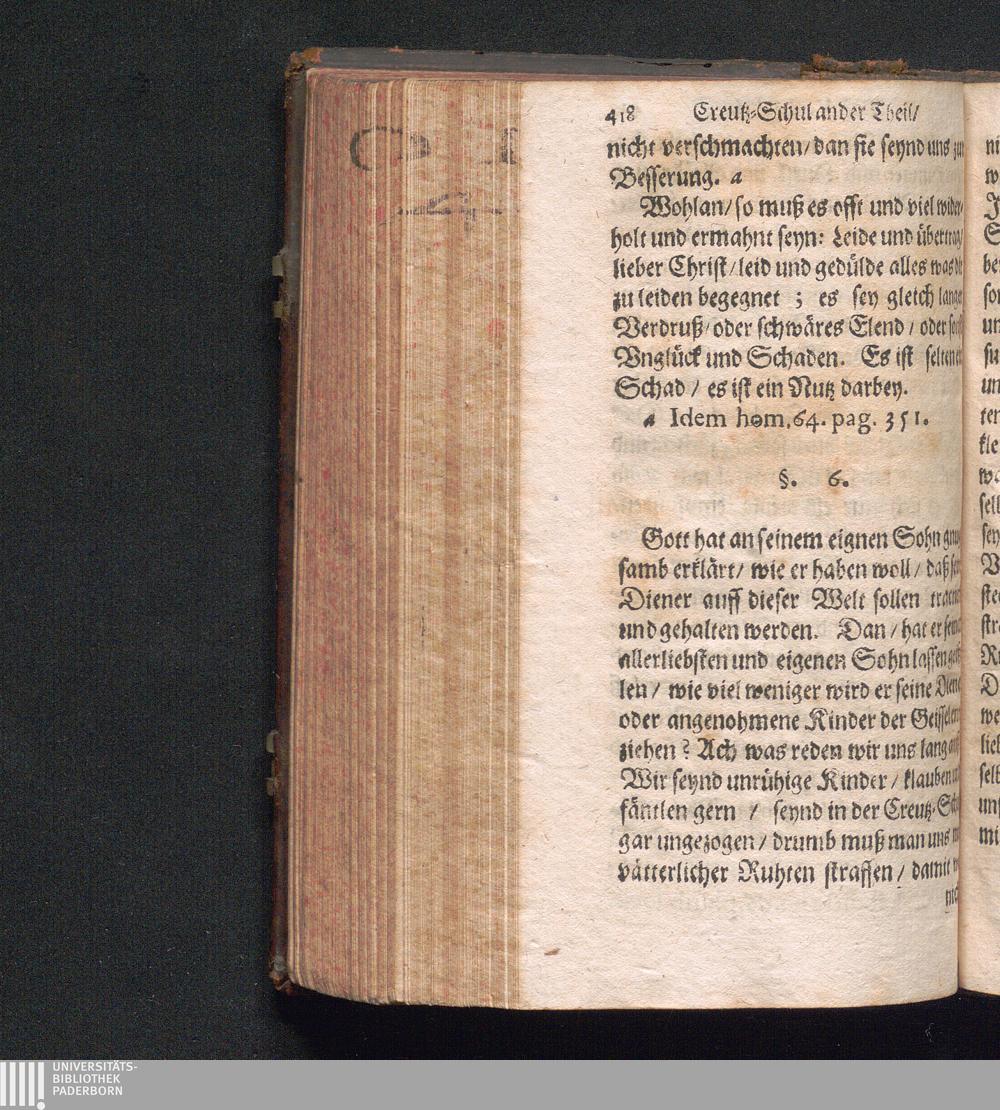 418 Creutz-Schul ander Theil/
nicht verschmachten/ dan sie seynd uns
Besserung. a
Wohlan/ so muß es offt und viel wider-
holt und ermahnt seyn: Leide und übertrag/
lieber Christ/ leid und gedülde alles was dir
zu leiden begegnet ; es sey gleich langer
Verdruß/ oder schwäres Elend / oder
Vnglück und Schaden. Es ist seltener
Schad / es ist ein Nutz darbey.
a Idem hom. 64. pag. 351.
§. 6.
Gott hat an seinem eignen Sohn
samb erklärt/ wie er haben woll / daß
Diener auff dieser Welt sollen
und gehalten werden. Dan / hat er
allerliebsten und eigenen Sohn lassen
len / wie viel weniger wird er seine
oder angenohmene Kinder der
ziehen? Ach was reden wir uns lang
Wir seynd unrühige Kinder / klauben
fäntlen gern / seynd in der Creutz-
gar ungezogen / drumb muß man uns
vätterlicher Ruhten straffen / damit
UNIVERSITÄTS-
BIBLIOTHEK
PADERBORN